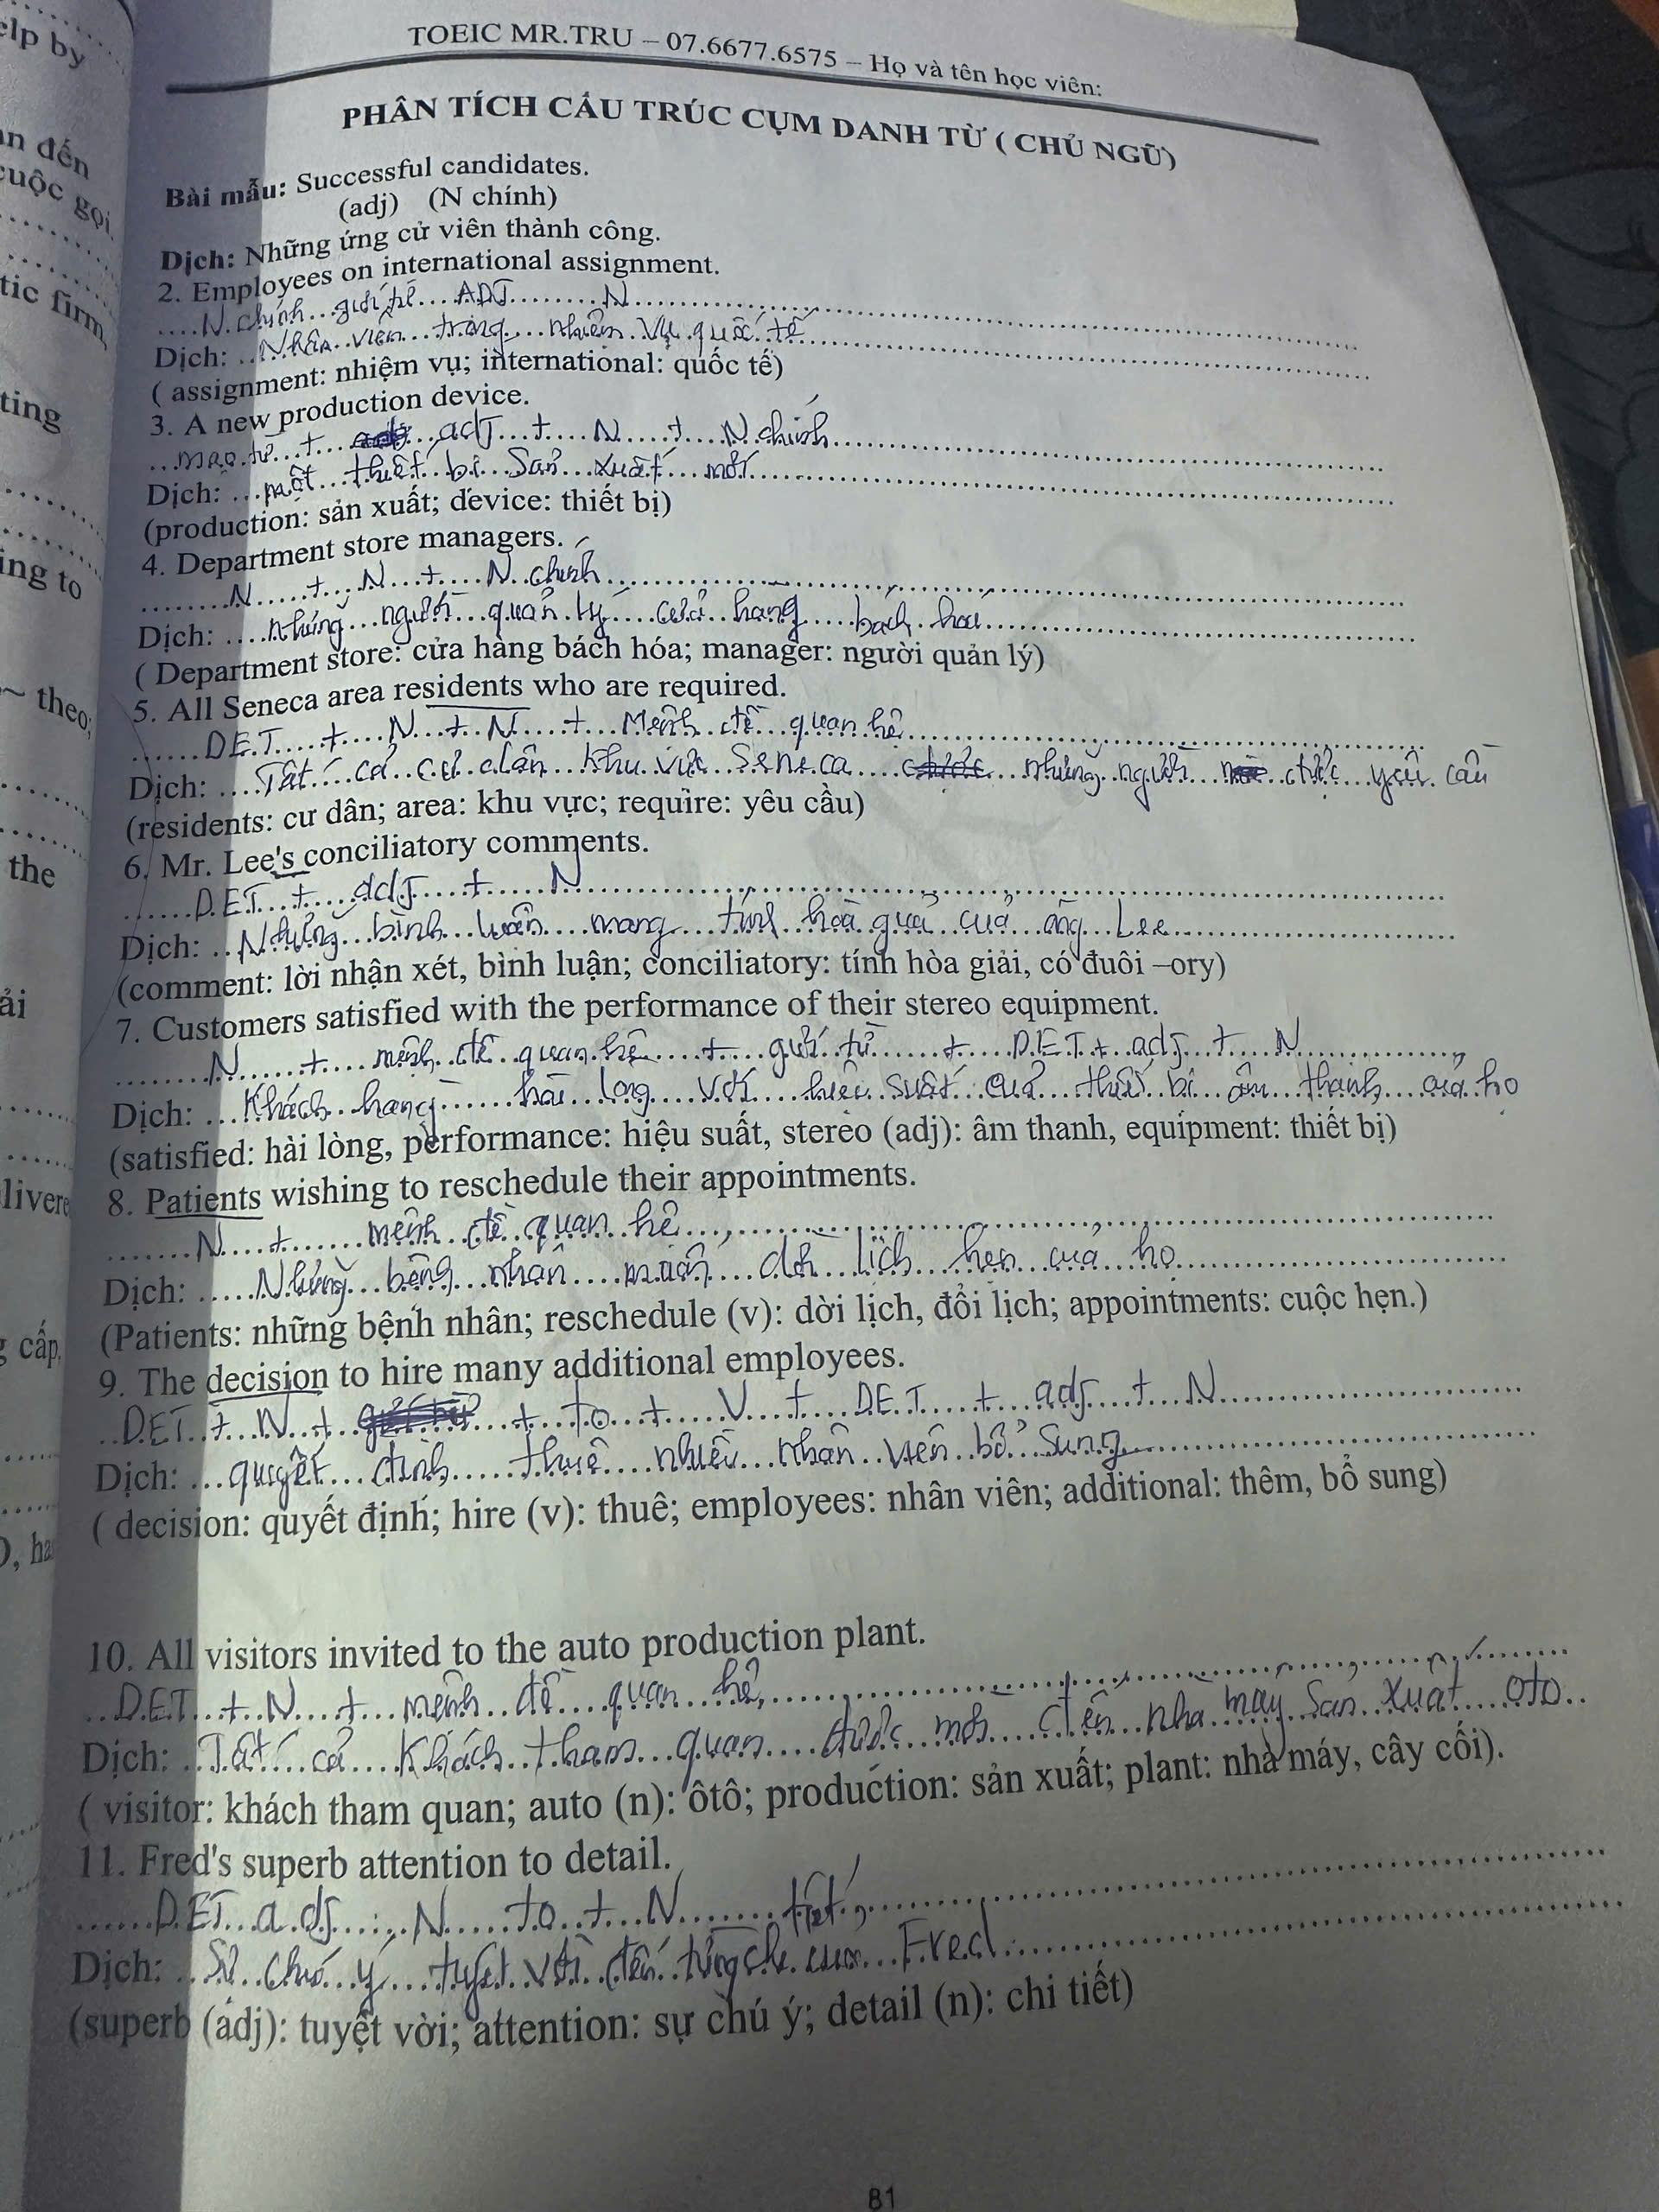 elp by
an đến
cuộc gọi.
tic firm,
ting
ing to
~ theo;
the
ải
livere
g cấp.
), ha
TOEIC MR.TRU – 07.6677.6575 – Họ và tên học viên:
PHÂN TÍCH CẤU TRÚC CỤM DANH TỪ ( CHỦ NGỮ)
Bài mẫu: Successful candidates.
(adj) (N chính)
Dịch: Những ứng cử viên thành công.
2. Employees on international assignment.
N chính giới từ ADJ N
Dịch: Nhân viên trong nhiệm vụ quốc tế
( assignment: nhiệm vụ; international: quốc tế)
3. A new production device.
mạo từ + adj + N + N chính
Dịch: một thiết bị sản xuất mới
(production: sản xuất; device: thiết bị)
4. Department store managers.
N + N + N chính
Dịch: những người quản lý cửa hàng bách hoá
( Department store: cửa hàng bách hóa; manager: người quản lý)
5. All Seneca area residents who are required.
DET + N + N + Mệnh đề quan hệ
Dịch: Tất cả cư dân khu vực Seneca những người được yêu cầu
(residents: cư dân; area: khu vực; require: yêu cầu)
6. Mr. Lee's conciliatory comments.
DET + adj + N
Dịch: Những bình luận mang tính hoà giải của ông Lee
(comment: lời nhận xét, bình luận; conciliatory: tính hòa giải, có đuôi –ory)
7. Customers satisfied with the performance of their stereo equipment.
N + mệnh đề quan hệ + giới từ + DET + adj + N
Dịch: Khách hàng hài lòng với hiệu suất của thiết bị âm thanh của họ
(satisfied: hài lòng, performance: hiệu suất, stereo (adj): âm thanh, equipment: thiết bị)
8. Patients wishing to reschedule their appointments.
N + mệnh đề quan hệ
Dịch: Những bệnh nhân muốn dời lịch hẹn của họ
(Patients: những bệnh nhân; reschedule (v): dời lịch, đổi lịch; appointments: cuộc hẹn.)
9. The decision to hire many additional employees.
DET + N + + to + V + DET + adj + N
Dịch: quyết định thuê nhiều nhân viên bổ sung
( decision: quyết định; hire (v): thuê; employees: nhân viên; additional: thêm, bổ sung)
10. All visitors invited to the auto production plant.
DET + N + mệnh đề quan hệ
Dịch: Tất cả khách tham quan được mời đến nhà máy sản xuất oto
( visitor: khách tham quan; auto (n): ôtô; production: sản xuất; plant: nhà máy, cây cối).
11. Fred's superb attention to detail.
DET adj N to + N
tiết
Dịch: Sự chú ý tuyệt vời đến từng chi của Fred
(superb (adj): tuyệt vời; attention: sự chú ý; detail (n): chi tiết)
81